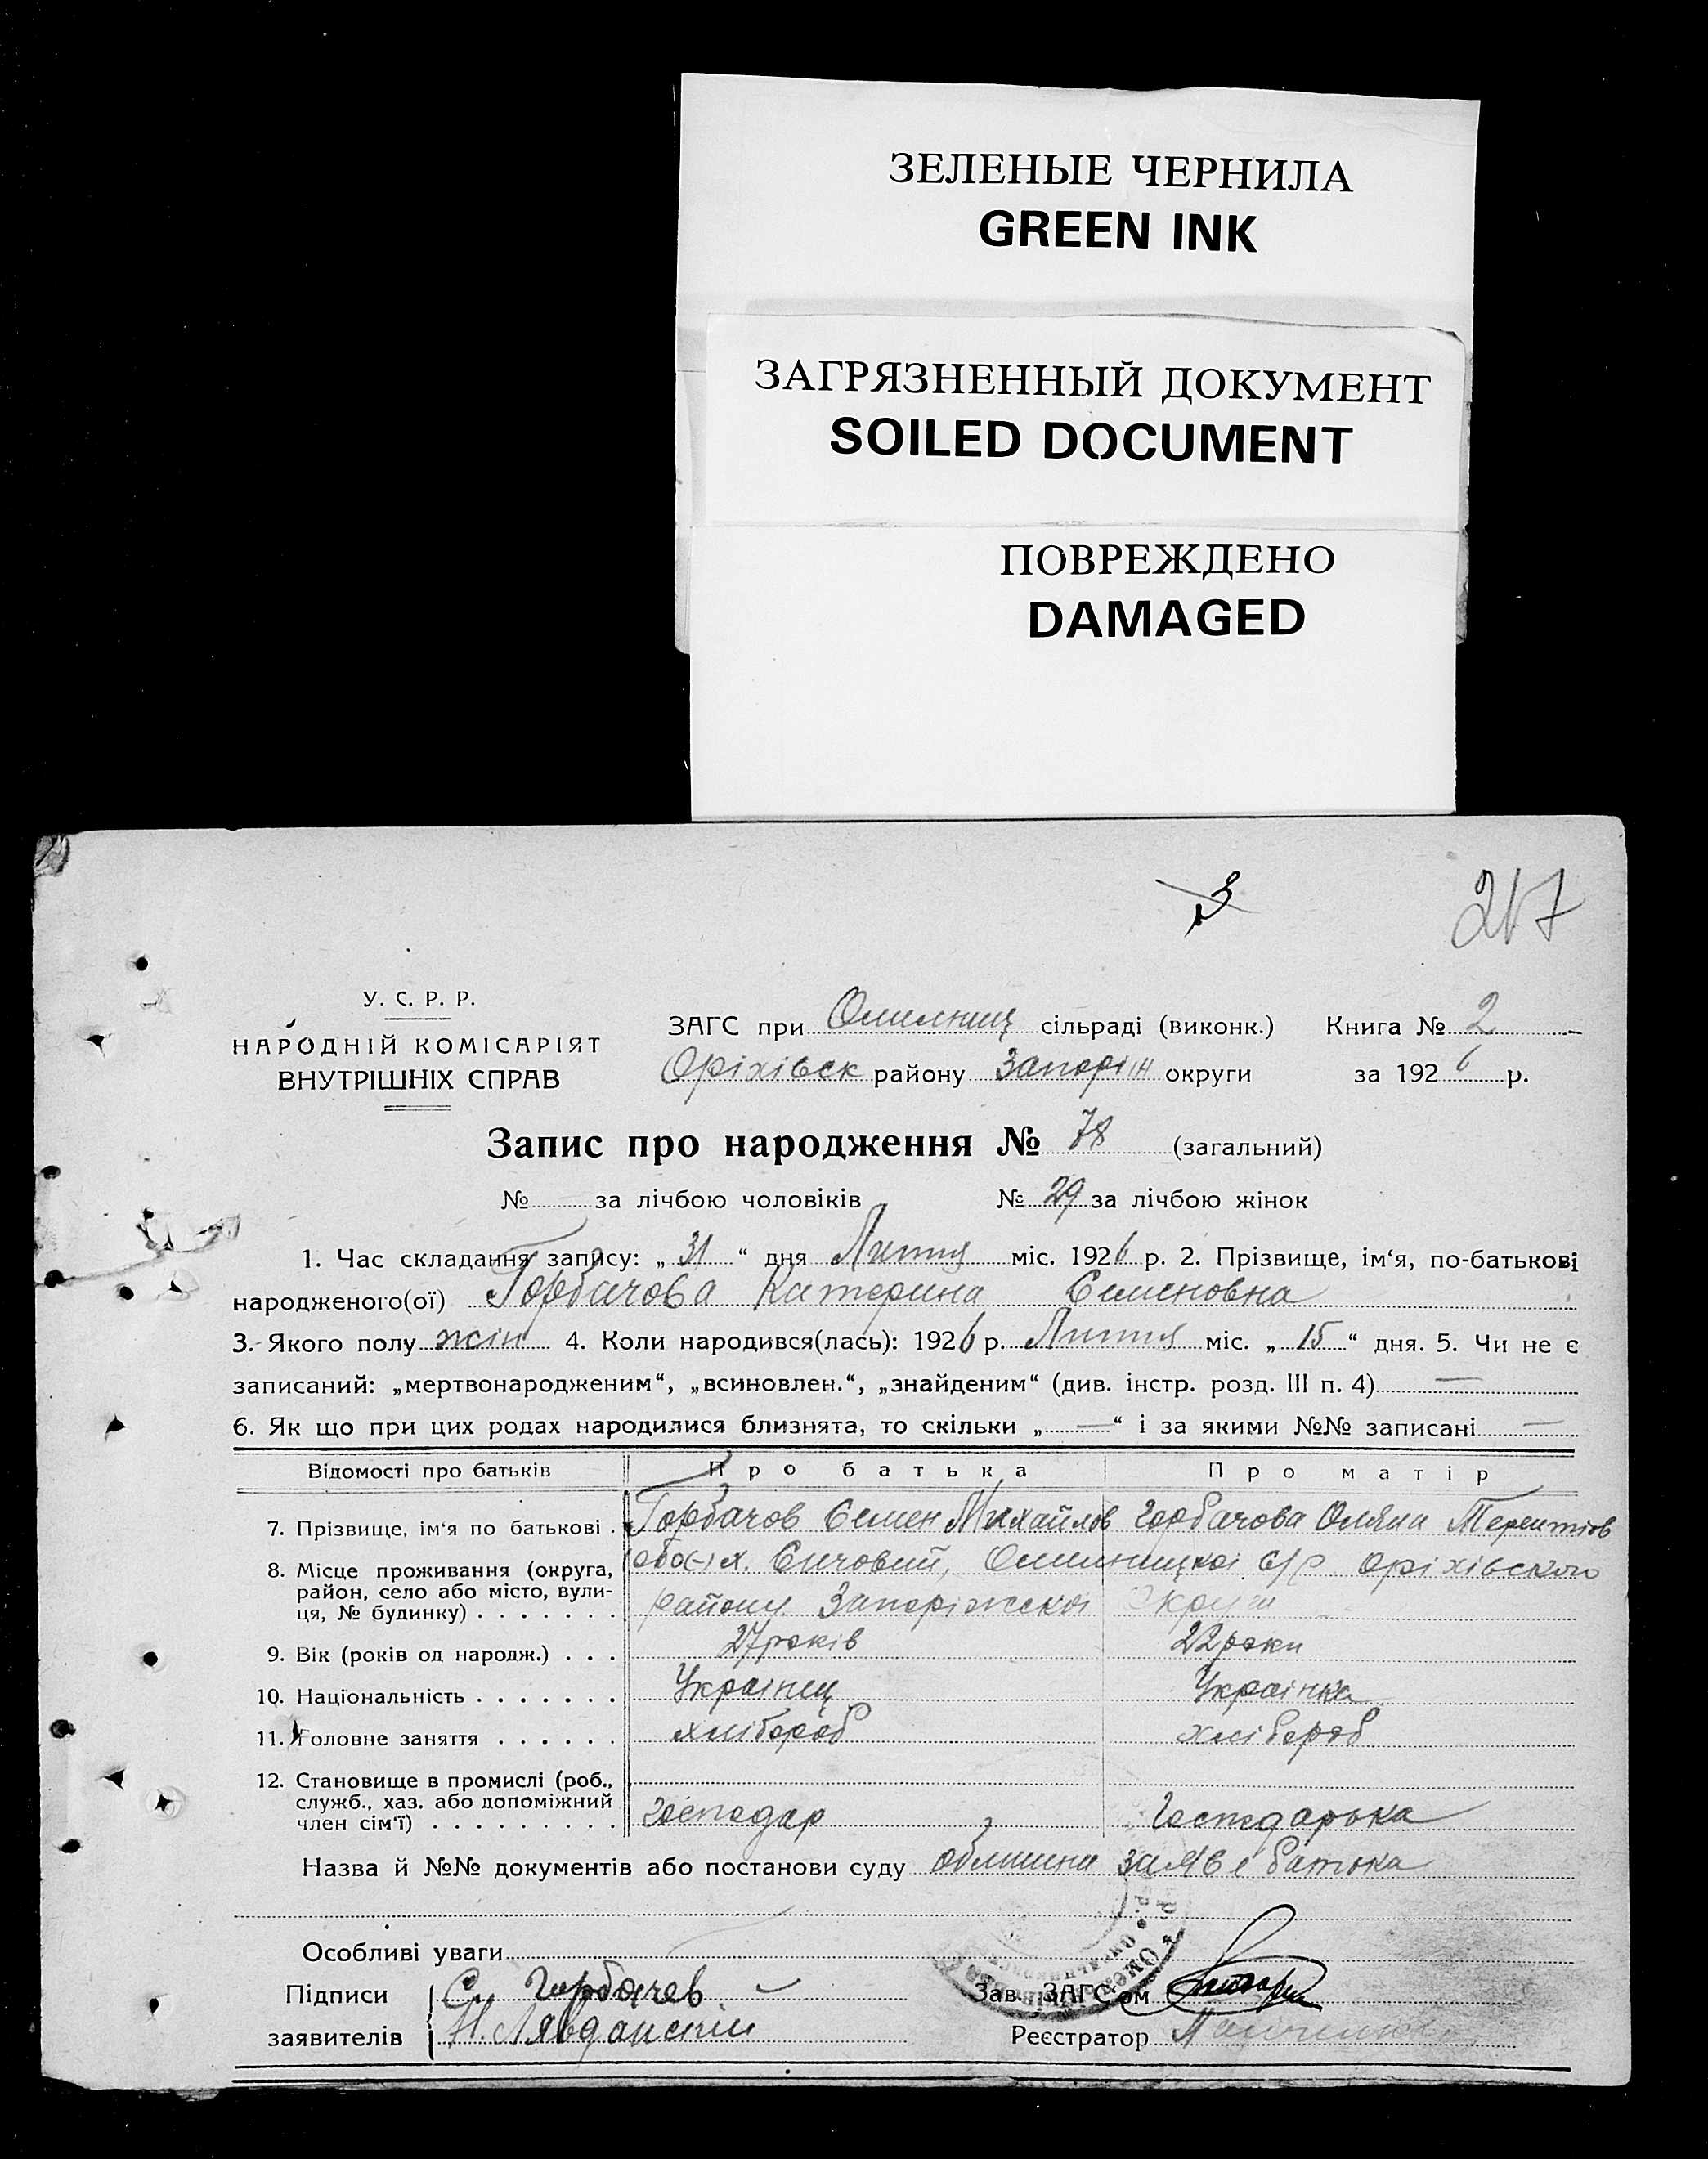 ЗЕЛЕНЫЕ ЧЕРНИЛА
GREEN INK
ЗАГРЯЗНЕННЫЙ ДОКУМЕНТ
SOILED DOCUMENT
ПОВРЕЖДЕНО
DAMAGED
3
217
У. С. Р. Р.
НАРОДНІЙ КОМІСАРІЯТ
ВНУТРІШНІХ СПРАВ
ЗАГС при сільраді (виконк.) Книга № 2
Оріхівск району Запоріж округи за 1926 р.
Запис про народження № 78 (загальний)
№ за лічбою чоловіків № 29 за лічбою жінок
1. Час складання запису: „31“ дня Липня міс. 1926 р. 2. Прізвище, ім'я, по-батькові
народженого(ої) Горбачова Катерина Семеновна
3. Якого полу жін 4. Коли народився(лась): 1926 р. Липня міс. „15“ дня. 5. Чи не є
записаний: „мертвонародженим“, „всиновлен.“, „знайденим“ (див. інстр. розд. III п. 4) —
6. Як що при цих родах народилися близнята, то скільки „—“ і за якими №№ записані —
Відомості про батьків Про батька Про матір
7. Прізвище, ім'я по батькові . Горбачов Семен Михайлов Горбачова Терентіов
8. Місце проживання (округа, район, село або місто, вулиця, № будинку) . . . . . . . х. с/р Оріхівского
району Запоріжскої Округи
9. Вік (років од народж.) . . . 27 років 22 роки
10. Національність . . . . . . . Українец Українка
11. Головне заняття . . . . . . хлібороб хлібороб
12. Становище в промислі (роб., служб., хаз. або допоміжний член сім'ї) . . . . . . . . . господар Господарька
Назва й №№ документів або постанови суду заяві батька
Особливі уваги
Підписи С. Горбачев Зав. ЗАГС'ом
заявителів Н. Реєстратор